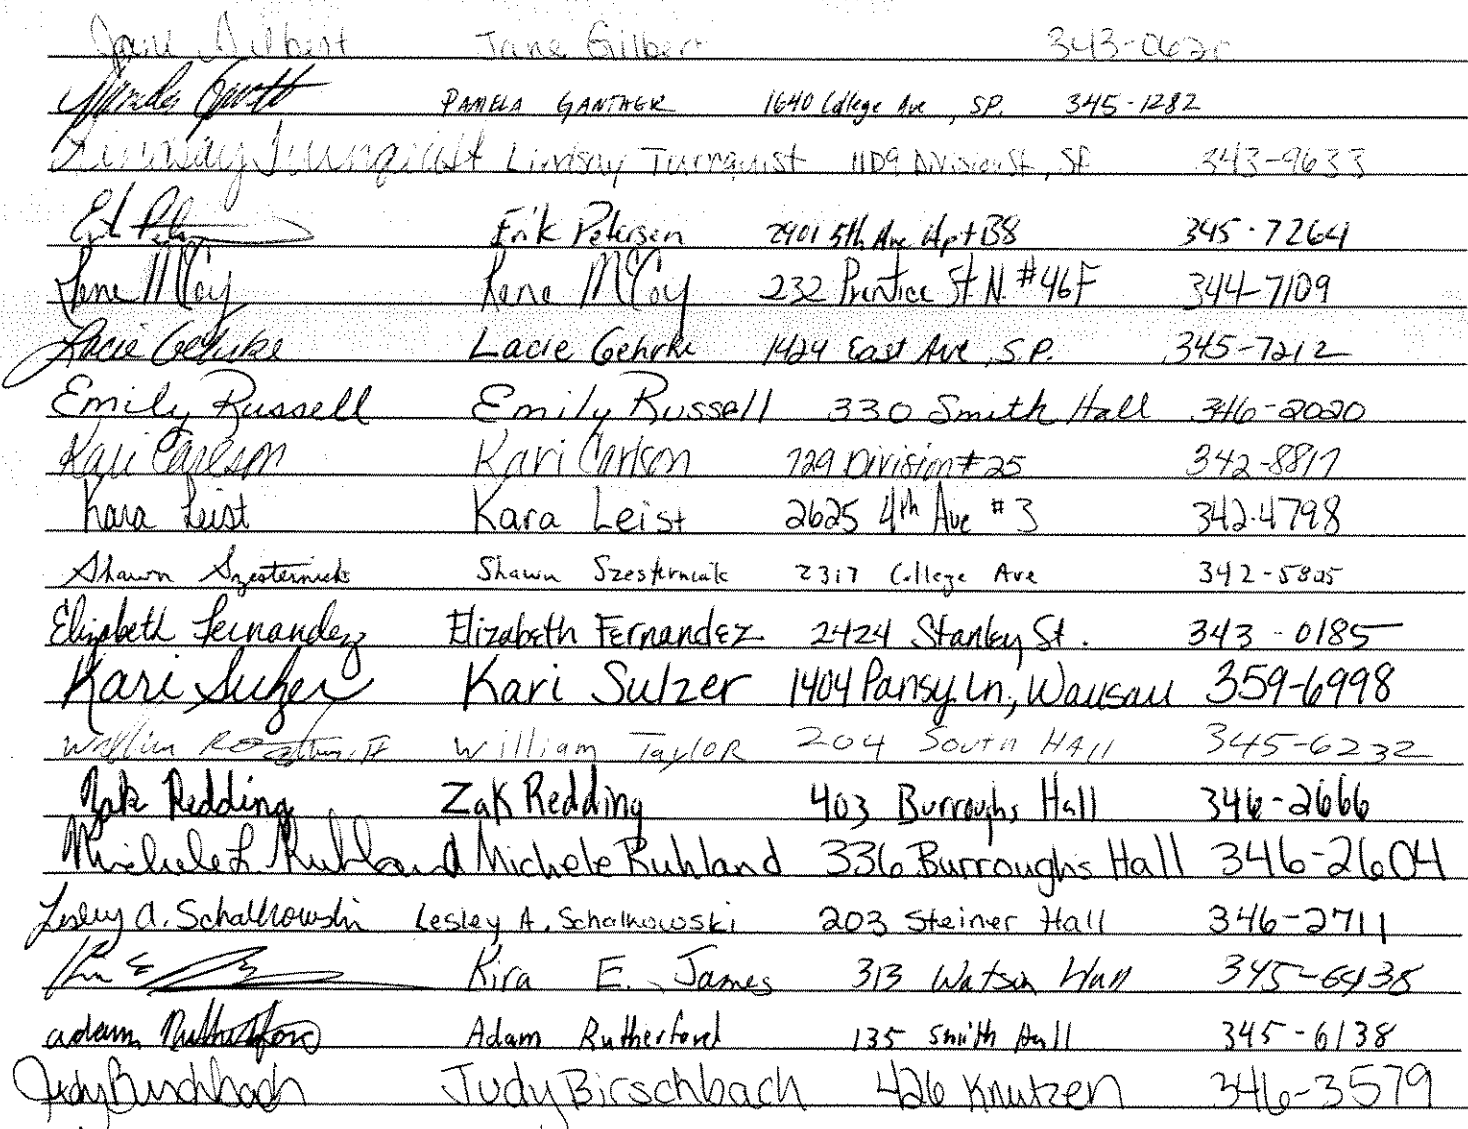 Jane Gilbert Jane Gilbert
Pamela PAMELA GANTHER 1640 College Ave, SP. 345-1282
Lindsay Turnquist Lindsay Turnquist 1109 Division St, SP 343-9633
Erik Petersen 2901 5th Ave Apt B8 345-7264
Lene McCoy Lene McCoy 232 Prentice St N. #46F 344-7109
Lacie Gehrke Lacie Gehrke 1424 East Ave, S.P. 345-7212
Emily Russell Emily Russell 330 Smith Hall 346-2020
Kari Carlson Kari Carlson 729 Division #25 342-8817
Kara Leist Kara Leist 2625 4th Ave #3 342-4798
Shawn Szesterniak Shawn Szesterniak 2317 College Ave 342-5805
Elizabeth Fernandez Elizabeth Fernandez 2424 Stanley St. 343-0185
Kari Sulzer Kari Sulzer 1404 Pansy Ln, Wausau 359-6998
William TaylOR 204 South HAll 345-6232
Zak Redding Zak Redding 403 Burroughs Hall 346-2666
Michele L Ruhland Michele Ruhland 336 Burroughs Hall 346-2604
Lesley A. Schalkowski Lesley A. Schalkowski 203 Steiner Hall 346-2711
Kira E. James 313 Watson Hall 345-6438
Adam Rutherford Adam Rutherford 135 Smith Hall 345-6138
Judy Birschbach Judy Birschbach 426 Knutzen 346-3579